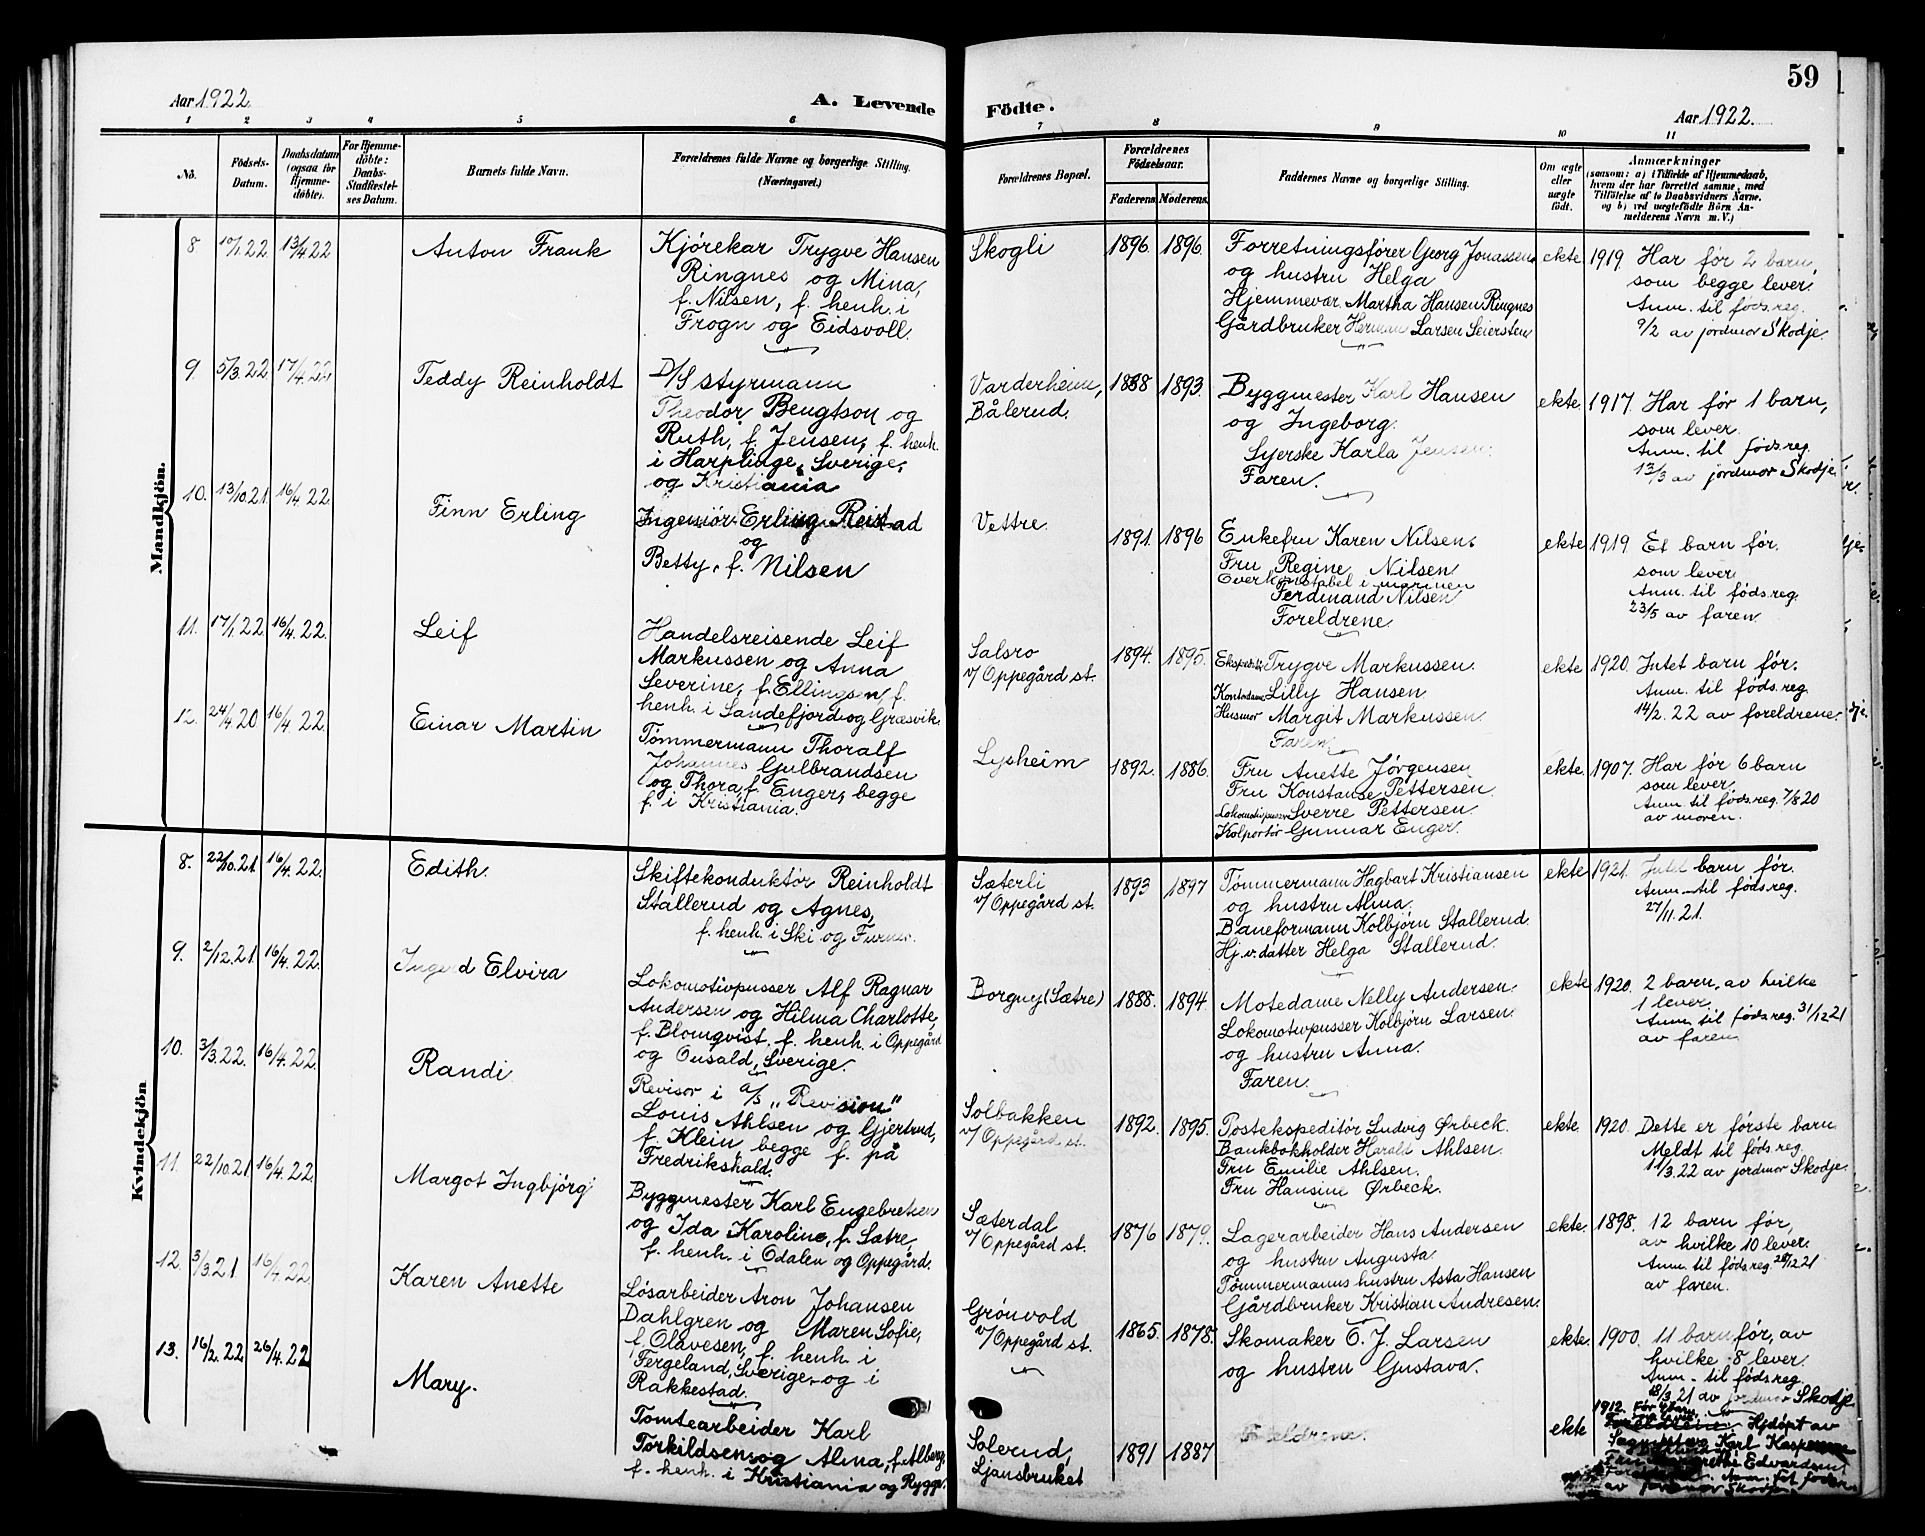 59
Aar 1922
A. Levende
Födte.
Aar 1922.
1 2 3 4 5 6 7 8 9 10 11
No.
Födsels-Datum.
Daabsdatum (ogsaa for Hjemme-döbte).
For Hjemme-döbte: Daabs-Stadfæstel-ses Datum.
Barnets fulde Navn.
Forældrenes fulde Navne og borgerlige Stilling. (Næringsvei.)
Forældrenes Bopæl.
Forældrenes Födselsaar.
Faderens. Moderens.
Faddernes Navne og borgerlige Stilling.
Om ægte eller uægte födt.
Anmærkninger
(saasom: a) i Tilfælde af Hjemmedaab,
hvem der har forrettet samme, med
Tilföielse af to Daabsvidners Navne,
og b) ved uægtefödte Börn An-
melderens Navn m. V.)
Mandkjön.
8. 10/1.22. 13/4 22 Anton Frank
Kjørekar Trygve Hansen
Ringnes og Mina,
f. Nilsen, f. henh. i
Frogn og Eidsvoll.
Skogli
1896. 1896.
Forretningsfører Georg Jonassen
og hustru Helga
Hjemmevær. Martha Hansen Ringnes
Gårdbruker Herman Larsen Seiersten
ekte
1919. Har før 2 barn,
som begge lever.
Anm. til føds.reg.
9/2 av jordmor Skodje.
9. 5/3.22. 17/4.22 Teddy Reinholdt
D/S styrmann
Theodor Bengtson og
Ruth, f. Jensen, f. henh.
i Harplinge, Sverige,
og Kristiania
Varderheim,
Bålerud.
1888 1893.
Byggmester Karl Hansen
og Ingeborg.
Syerske Karla Jensen.
Faren.
ekte.
1917. Har før 1 barn,
som lever.
Anm. til føds.reg.
13/3 av jordmor Skodje
10. 13/10.21. 16/4.22. Finn Erling
Ingeniør Erling Reistad
og
Betty, f. Nilsen
Vettre.
1891. 1896
Enkefru Karen Nilsen.
Fru Regine Nilsen
Overkonstabel i marinen
Ferdinand Nilsen
Foreldrene.
ekte
1919 Et barn før.
som lever.
Anm. til føds.reg.
23/5 av faren
11. 17/1.22. 16/4.22. Leif
Handelsreisende Leif
Markussen og Anna
Severine, f. Ellingsen, f.
henh. i Sandefjord og Græsvik.
Salsro
v/ Oppegård st.
1894. 1895.
Trygve Markussen.
Kontordame Lilly Hansen
Husmor Margit Markussen.
Faren.
ekte
1920. Intet barn før.
Anm. til føds.reg.
14/2.22 av foreldrene.
12. 24/4 20 16/4 22. Einar Martin
Tømmermann Thoralf
Johannes Gulbrandsen
og Thora, f. Enger, begge
f. i Kristiania.
Lysheim
1892. 1886.
Fru Anette Jørgensen
Fru Konstanse Pettersen.
Lokomotivpusser Sverre Pettersen.
Kolportør Gunnar Enger.
ekte.
1907. Har før 6 barn
som lever.
Anm. til føds.reg. 7/8 20
av moren.
Kvindekjön
8. 22/10.21. 16/4.22. Edith.
Skiftekonduktør Reinholdt
Stallerud og Agnes,
f. henh. i Ski og Furnes.
Sæterli
v/ Oppegård st.
1893 1897
Tømmermann Hagbart Kristiansen
og hustru Alma.
Baneformann Kolbjørn Stallerud.
Hj.v. datter Helga Stallerud.
ekte
1921. Intet barn før.
Anm. til føds.reg.
27/11.21.
9. 2/12.21. 16/4.22. Ingerd Elvira
Lokomotivpusser Alf Ragnar
Andersen og Hilma Charlotte,
f. Blomqvist. f. henh. i Oppegård
og Onsald, Sverige.
Borgny (Sætre)
1888. 1894.
Motedame Nelly Andersen.
Lokomotivpusser Kolbjørn Larsen
og hustru Anna.
Faren.
ekte
1920. 2 barn, av hvilke
1 lever.
Anm. til føds.reg. 31/12 21
av faren
10. 3/3.22. 16/4.22. Randi
Revisor i a/s "Revision"
Louis Ahlsen og Gjertrud,
f. Klein, begge f. på
Fredrikshald.
Solbakken
v/ Oppegård st.
1892. 1895.
Postekspeditør Ludvig Ørbeck.
Bankbokholder Harald Ahlsen.
Fru Emilie Ahlsen.
Fru Hansine Ørbeck.
ekte.
1920. Dette er første barn.
Meldt til føds.reg.
11/3.22 av jordmor Skodje.
11. 22/10.21. 16/4.22. Margot Ingbjørg
Byggmester Karl Engebretsen
og Ida Karoline, f. Sætre,
f. henh. i Odalen og Oppegård.
Sæterdal
v/ Oppegård st.
1876 1879.
Lagerarbeider Hans Andersen
og hustru Augusta.
Tømmermanns hustru Asta Hansen
Gårdbruker Kristian Andresen.
ekte.
1898. 12 barn før,
av hvilke 10 lever.
Anm. til føds.reg. 28/12 21
av faren.
12. 3/3.21. 16/4.22. Karen Anette
Løsarbeider Aron Johansen
Dahlgren og Maren Sofie,
f. Olavesen, f. henh. i
Fergeland, Sverige, og i
Rakkestad.
Grönvold
v/ Oppegård st.
1865. 1878.
Skomaker O. J. Larsen
og hustru Gustava.
ekte.
1900. 11 barn før, av
hvilke 8 lever.
Anm. til føds.reg.
18/3 21 av jordmor Skodje
13. 16/2.22 26/4.22 Mary.
Tomtearbeider Karl
Torkildsen og Alma, f. Alberg,
f. henh. i Kristiania og Rygge.
Solerud,
Ljansbruket
1891 1887
Foreldrene.
ekte
1912. Før
Hjdøpt av
Karl Kaspersen
Fru Edvardsen
av jordmor Skodje